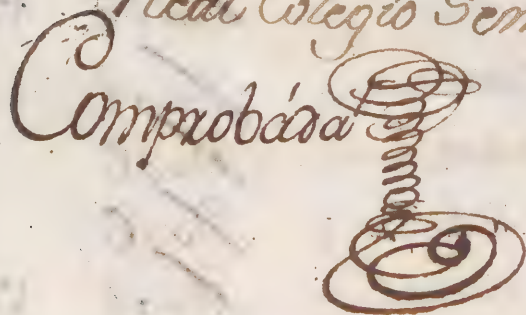 Real Colegio Sem
Comprobáda